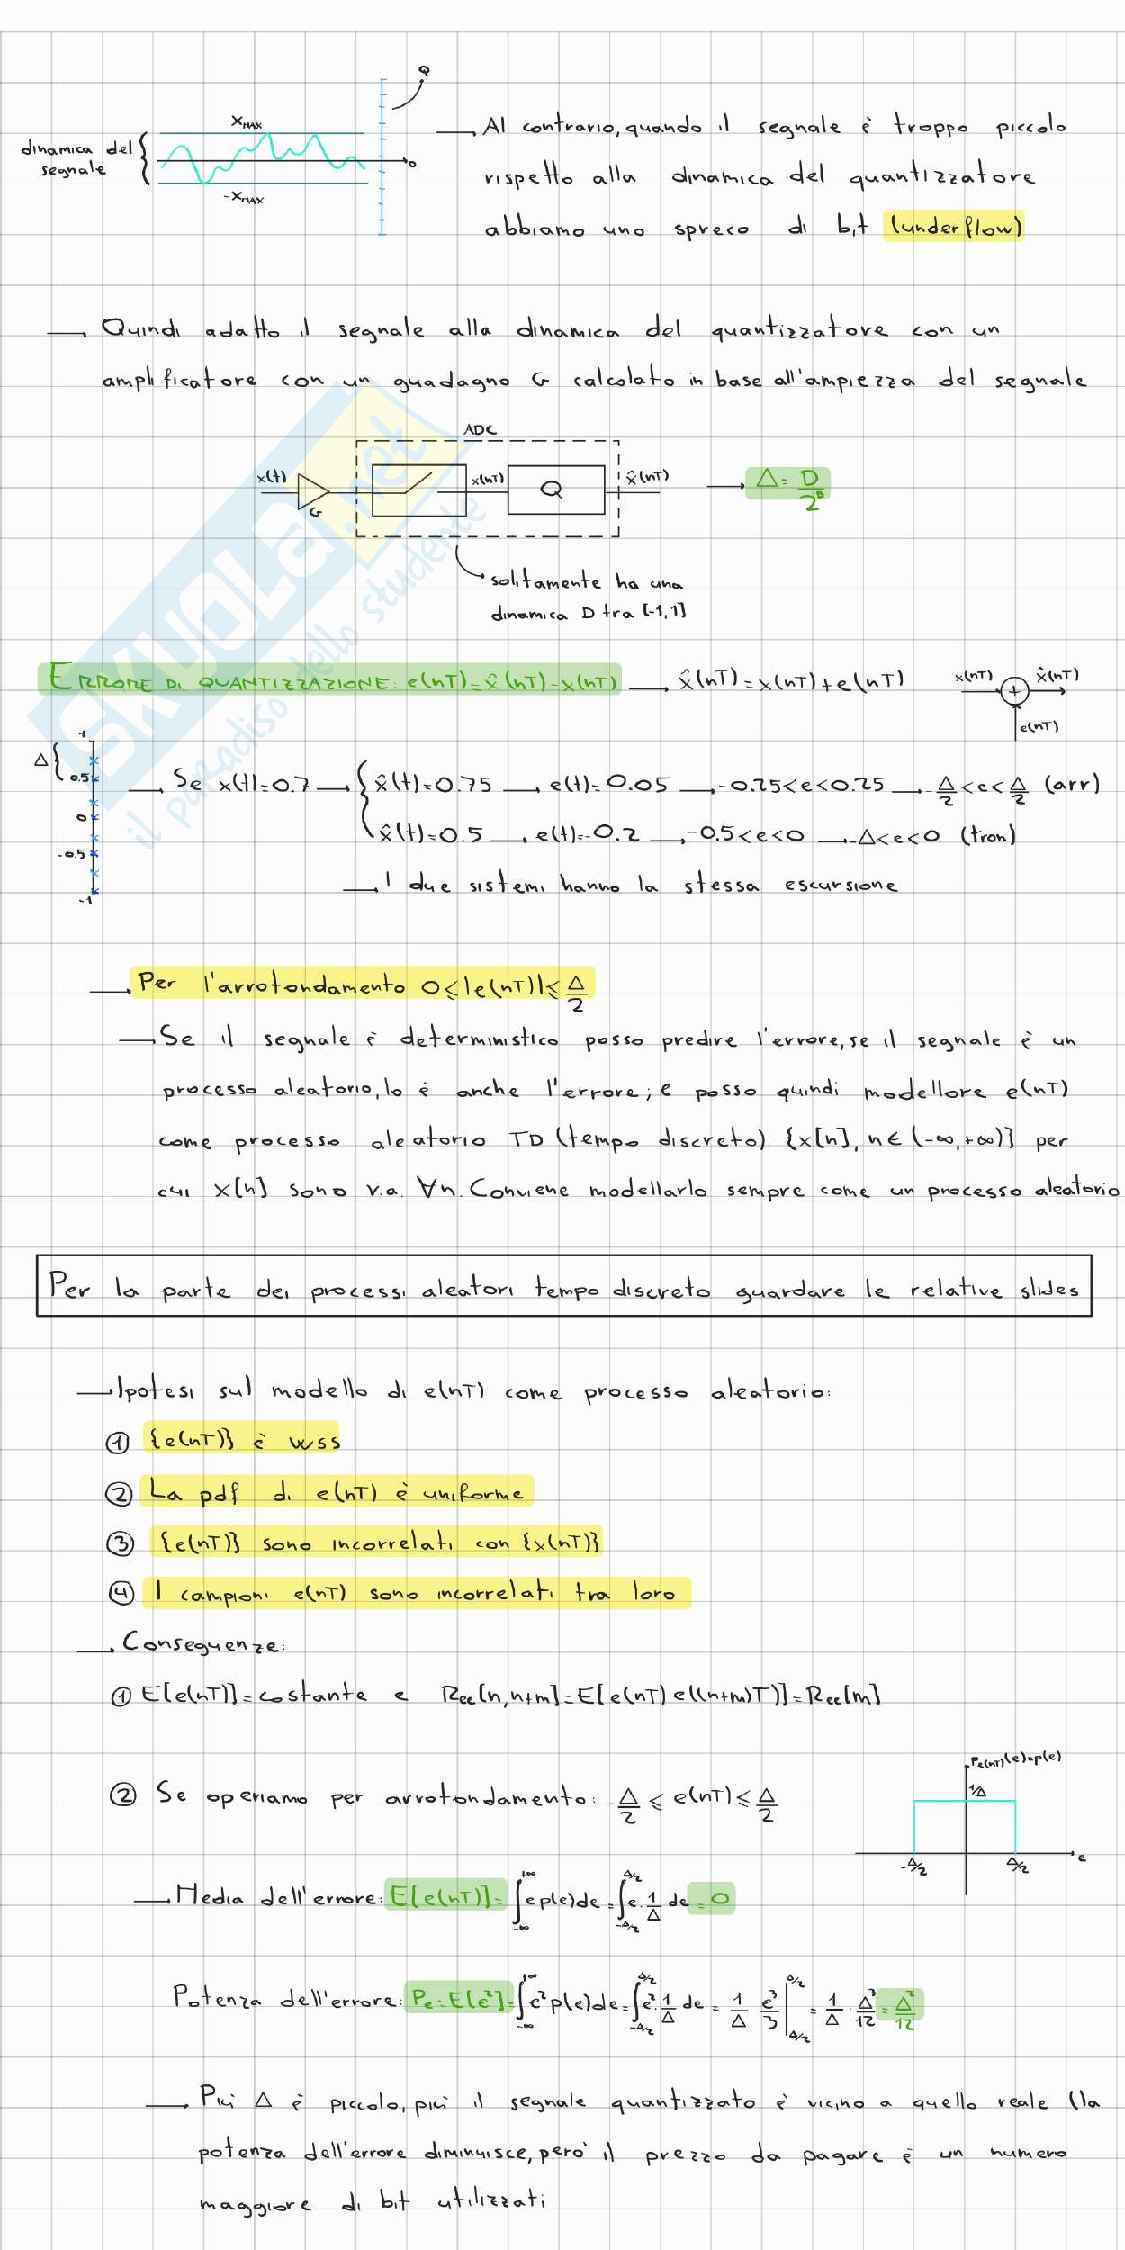 Q
X MAX
dinamica del segnale
-X MAX
→ Al contrario, quando il segnale è troppo piccolo
rispetto alla dinamica del quantizzatore
abbiamo uno spreco di bit (underflow)
→ Quindi adatto il segnale alla dinamica del quantizzatore con un
amplificatore con un guadagno G calcolato in base all'ampiezza del segnale
ADC
x(t) G x(nT) Q x̂(nT) → Δ = D/2^B
solitamente ha una
dinamica D tra [-1,1]
ERRORE DI QUANTIZZAZIONE: e(nT)=x̂(nT)-x(nT) → x̂(nT)=x(nT)+e(nT)
x(nT) + x̂(nT)
e(nT)
1
Δ{ 0.5
0
-0.5
-1
→ Se x(t)=0.7 → { x̂(t)=0.75 → e(t)=0.05 → -0.25<e<0.25 → -Δ/2<e<Δ/2 (arr)
x̂(t)=0.5 → e(t)=-0.2 → -0.5<e<0 → -Δ<e<0 (tron)
→ I due sistemi hanno la stessa escursione
→ Per l'arrotondamento 0≤|e(nT)|≤Δ/2
→ Se il segnale è deterministico posso predire l'errore, se il segnale è un
processo aleatorio, lo è anche l'errore; e posso quindi modellore e(nT)
come processo aleatorio TD (tempo discreto) {x[n], n∈(-∞,+∞)} per
cui x[n] sono v.a. ∀n. Conviene modellarlo sempre come un processo aleatorio
Per la parte dei processi aleatori tempo discreto guardare le relative slides
→ Ipotesi sul modello di e(nT) come processo aleatorio:
① {e(nT)} è WSS
② La pdf di e(nT) è uniforme
③ {e(nT)} sono incorrelati con {x(nT)}
④ I campioni e(nT) sono incorrelati tra loro
→ Conseguenze:
① E[e(nT)]=costante e Ree[n,n+m]=E[e(nT) e((n+m)T)]=Ree[m]
② Se operiamo per arrotondamento: Δ/2 ≤ e(nT) ≤ Δ/2
Pe(nT)(e)=p(e)
1/Δ
-Δ/2 Δ/2 e
→ Media dell'errore: E[e(nT)]= ∫_{-∞}^{+∞} e p(e)de = ∫_{-Δ/2}^{Δ/2} e·1/Δ de = 0
Potenza dell'errore: Pe=E[e²]= ∫_{-∞}^{+∞} e² p(e)de = ∫_{-Δ/2}^{Δ/2} e²·1/Δ de = 1/Δ e³/3 |_{Δ/2}^{Δ/2} = 1/Δ · Δ³/12 = Δ²/12
→ Più Δ è piccolo, più il segnale quantizzato è vicino a quello reale (la
potenza dell'errore diminuisce, però il prezzo da pagare è un numero
maggiore di bit utilizzati
SKUOLA.net
il paradiso dello studente